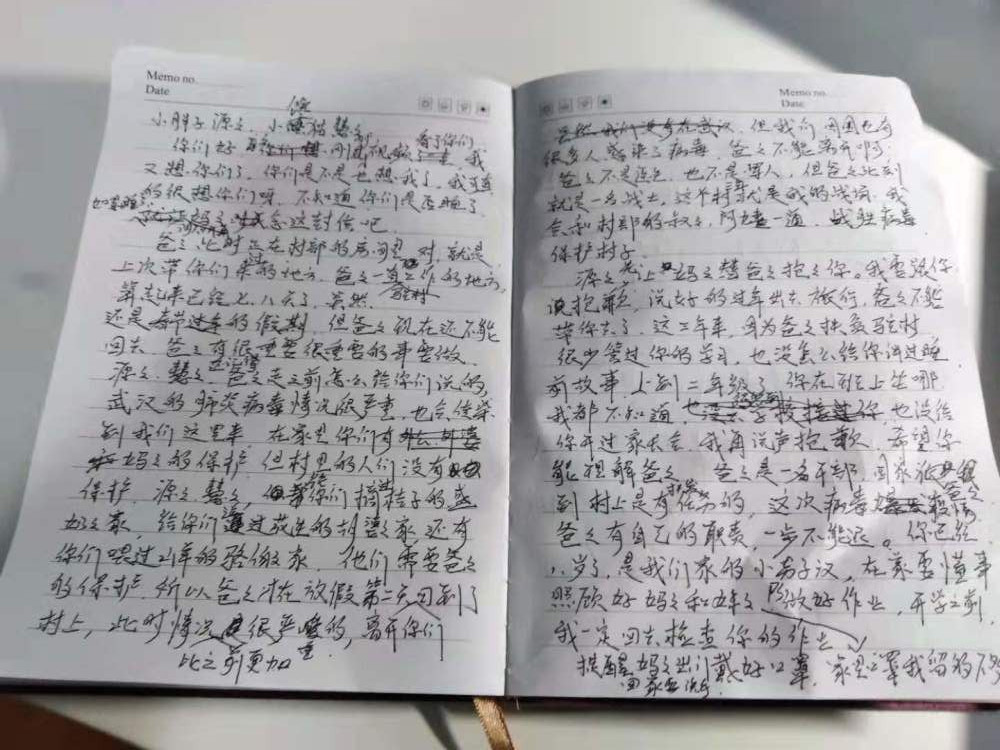 Memo no.
Date
小胖子源源,小懒猫慧慧
你们好 刚刚视频看了你们,我
又想你们了,你们是不是也想我了,我可真
的很想你们呀,不知道你们是否睡了
如果睡了 妈妈念这封信吧
爸爸此时正在村部的房间里,对,就是
上次带你们来过的地方,爸爸一直工作的地方,
算起来已经七、八天了,虽然
还是春节过年的假期,但爸爸现在还不能
回去,爸爸有很重要很重要的事要做,
源源、慧慧,还记得爸爸走之前怎么给你们说的,
武汉的肺炎病毒情况很严重,也会传染
到我们这里来,在家里你们有
妈妈的保护,但村里的人们没有
保护,源源慧慧,你们摘桔子的盛
奶奶家,给你们送过花生的胡婆婆家,还有
你们喂过小羊的骆伯伯家,他们需要爸爸
的保护,所以爸爸才在放假第二天回到了
村上,此时情况很严重的,离开你们
比之前更加
Memo no.
Date
虽然我们没有在武汉,但我们周围也有
很多人感染了病毒,爸爸不能离开啊
爸爸不是医生,也不是军人,但爸爸此刻
就是一名战士,这个村就是我的战场,我
会和村部的叔叔、阿姨一道,战胜病毒
保护村子
源源,先让妈妈替爸爸抱抱你。我要跟你
说抱歉,说好的过年出去旅行,爸爸不能
带你去了,这二年来,因为爸爸扶贫驻村
很少管过你的学习,也没怎么给你讲过睡
前故事,上到二年级了,你在班上坐哪
我都不知道,也没去学校接过你,也没给
你开过家长会,我再说声抱歉,希望你
能理解爸爸,爸爸是一名干部,国家派我
到村上是有任务的,这次病毒
爸爸有自己的职责,一步不能退。你已经
八岁了,是我们家的小男子汉,在家要懂事
照顾好妈妈和妹妹,做好作业,开学之前,
我一定回去检查你的作业
提醒妈妈出门戴好口罩,家里口罩我留的不多
回家要洗手